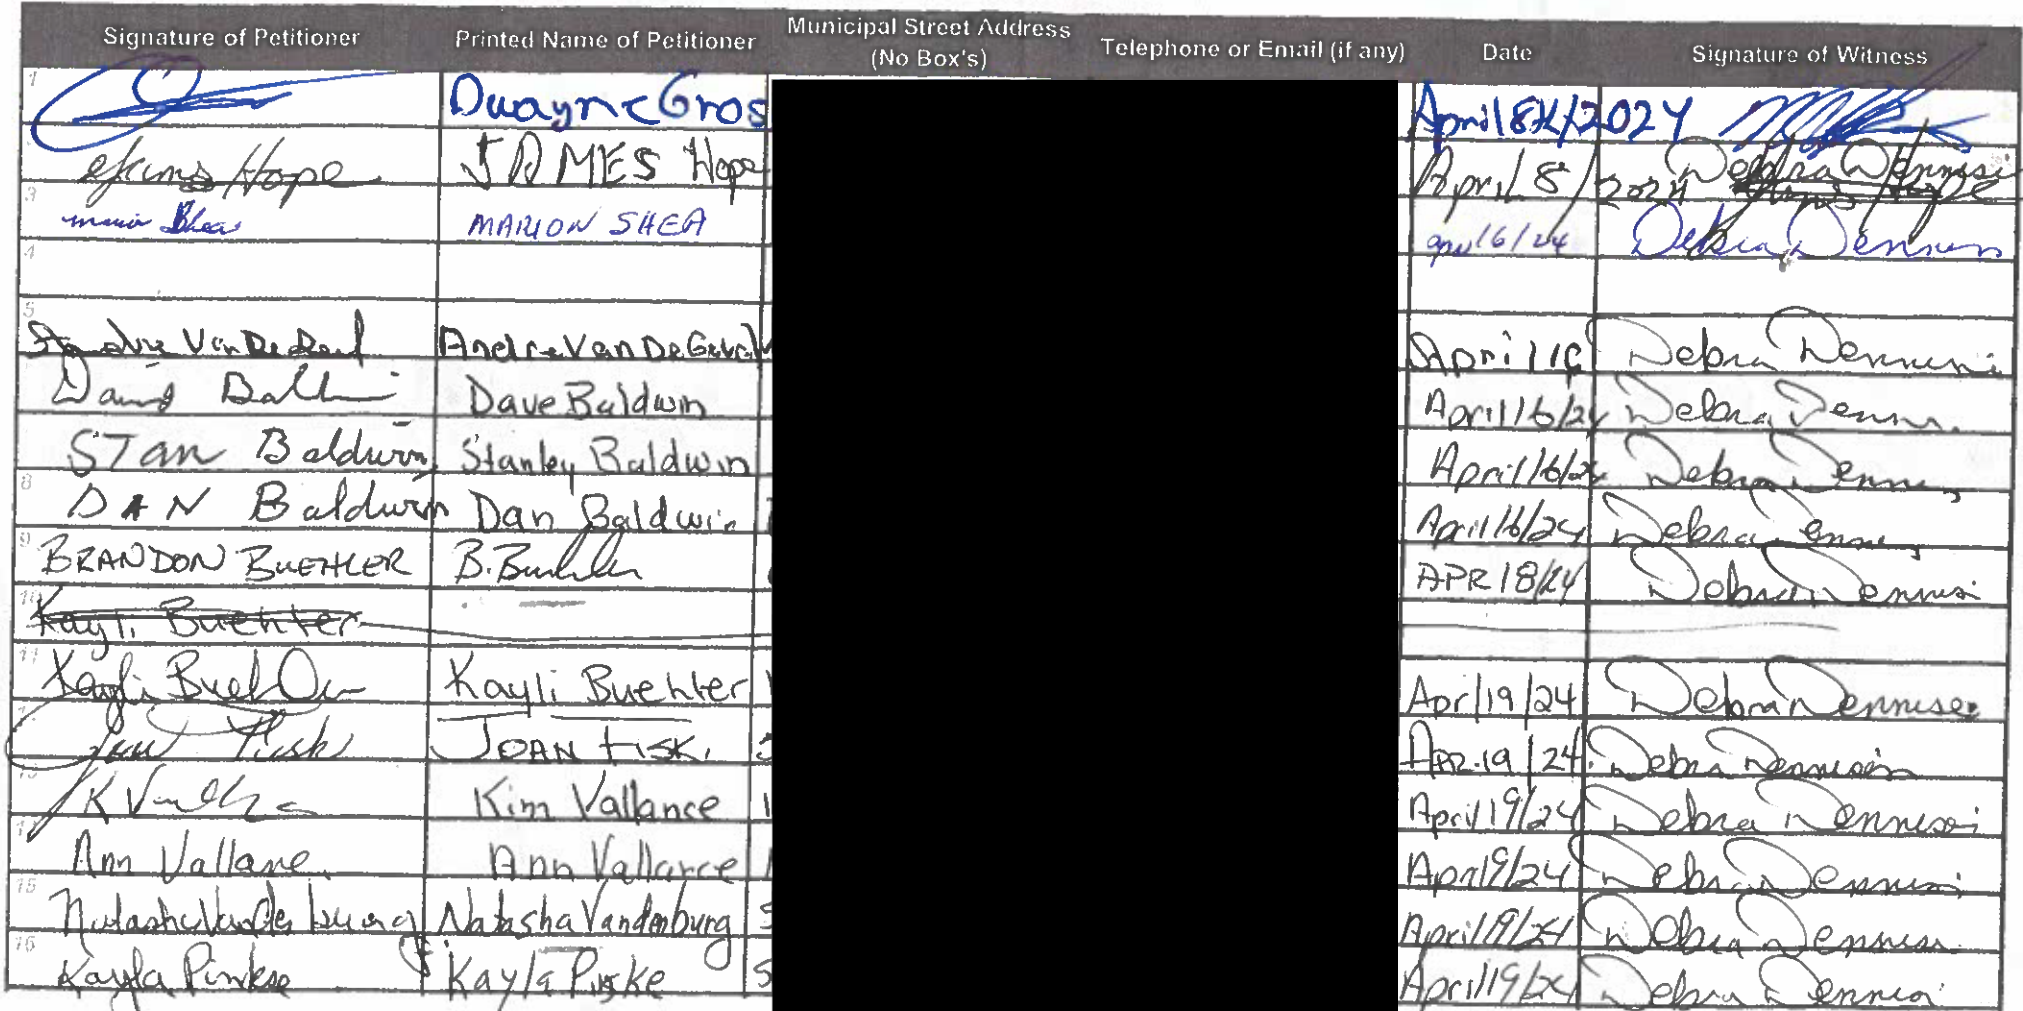 Signature of Petitioner Printed Name of Petitioner Municipal Street Address (No Box's) Telephone or Email (if any) Date Signature of Witness
1 Dwayne Gros April 8th/2024
James Hope JAMES Hope April 8/2024 Debra Dennison
3 Marion Shea MARION SHEA April 16/24 Debra Dennison
4
5 Andre VanDeGraaf Andre VanDeGraaf April 16 Debra Dennison
David Baldwin Dave Baldwin April 16/24 Debra Dennison
STan Baldwin Stanley Baldwin April 16/24 Debra Dennison
8 DAN Baldwin Dan Baldwin April 16/24 Debra Dennison
9 BRANDON BUEHLER B. Buehler APR 18/24 Debra Dennison
10 Kayli Buehler
11 Kayli Buehler Kayli Buehler Apr/19/24 Debra Dennison
JOAN FISK APR. 19/24 Debra Dennison
13 K Vallance Kim Vallance April 19/24 Debra Dennison
14 Ann Vallance Ann Vallance April 19/24 Debra Dennison
15 Natasha Vandenburg Natasha Vandenburg April 19/24 Debra Dennison
16 Kayla Pinkse Kayla April 19/24 Debra Dennison